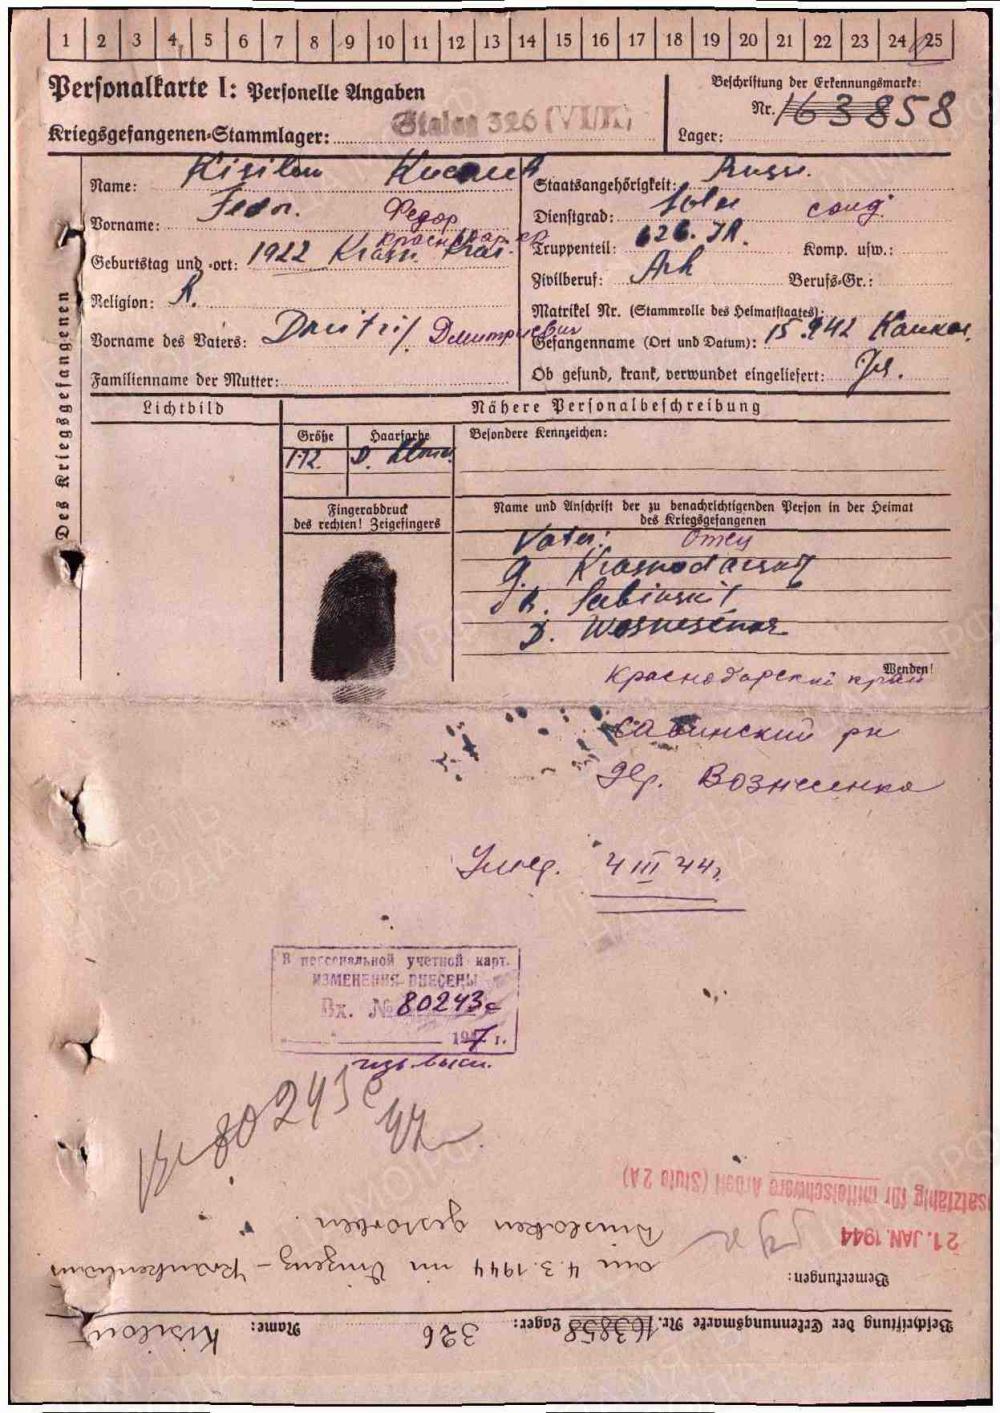 1 2 3 4 5 6 7 8 9 10 11 12 13 14 15 16 17 18 19 20 21 22 23 24 25
Personalkarte I: Personelle Angaben
Kriegsgefangenen-Stammlager: Stalag 326 (VI/K)
Beschriftung der Erkennungsmarke:
Nr. 163858
Lager:
Des Kriegsgefangenen
Name: Kisilow
Vorname: Fedor. Федор
Geburtstag und -ort: 1922 Krasn.
Religion: R.
Vorname des Vaters: Dmitrij Дмитриевич
Familienname der Mutter:
Staatsangehörigkeit: Russ.
Dienstgrad: Sold солд
Truppenteil: 626. IR. Komp. usw.:
Zivilberuf: Arb Berufs-Gr.:
Matrikel Nr. (Stammrolle des Heimatstaates):
Gefangenname (Ort und Datum): 15.9.42 Kaukas.
Ob gesund, krank, verwundet eingeliefert:
Lichtbild
Nähere Personalbeschreibung
Größe Haarfarbe Besondere Kennzeichen:
172. D.
Fingerabdruck
des rechten! Zeigefingers
Name und Anschrift der zu benachrichtigenden Person in der Heimat
des Kriegsgefangenen
Vater: Отец
G. Krasnodarskij
R. Sabinskij
D. Wosnesenka
Wenden!
Краснодарский край
Сабинский рн
дер. Вознесенка
Умер. 4 III 44г.
В персональной учетной карт.
ИЗМЕНЕНИЯ ВНЕСЕНЫ
Вх. № 80243с
1947 г.
Вх 80243с
47г.
Einsatzfähig für mittelschwere Arbeit (Stufe 2A)
21. JAN. 1944
Bemerkungen:
am 4.3.1944 im Krankenhaus
Dinslaken gestorben.
Beschriftung der Erkennungsmarke Nr. 163858 Lager: 326 Name: Kisilow